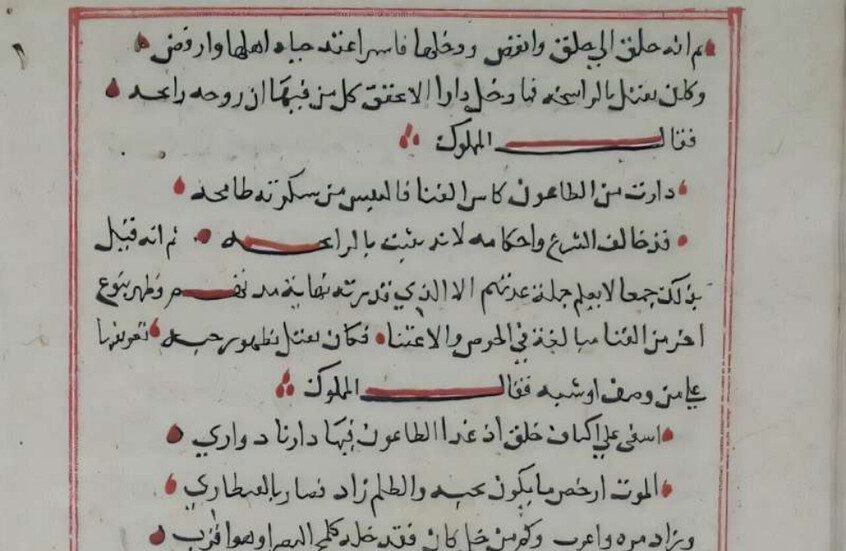 ثم انه حلق الى جلق وانقض ودخلها فاسرا عند حياه اهلها وارفض
وكان يقتل بالرايحه فما دخل دارا الا عقق كل من فيها ان روحه رايحه
فقال المملوك
دارت من الطاعون كاس الفنا فالنفس من سكرته طافحه
قد خالف الشرع واحكامه لانه يثبت بالرايحه ثم انه قتل
بذلك جمعا لا يعلم جملة عدتهم الا الذي قدرته نهاية مد نفسهم وظهر بنوع
اخر من الفنا مبالغة في الحرص والاعتنا فكان يقتل بظهور حبه
على من وصف او شبه فقال المملوك
اسفى على اكناف جلق اذ غدا الطاعون فيها دارنا دواري
الموت ارخص ما يكون بحبه والظلم زاد فصار بالقنطاري
وزاد مره واعرب وكم من خل كان فقد خله كلمح البصر او هو اقرب